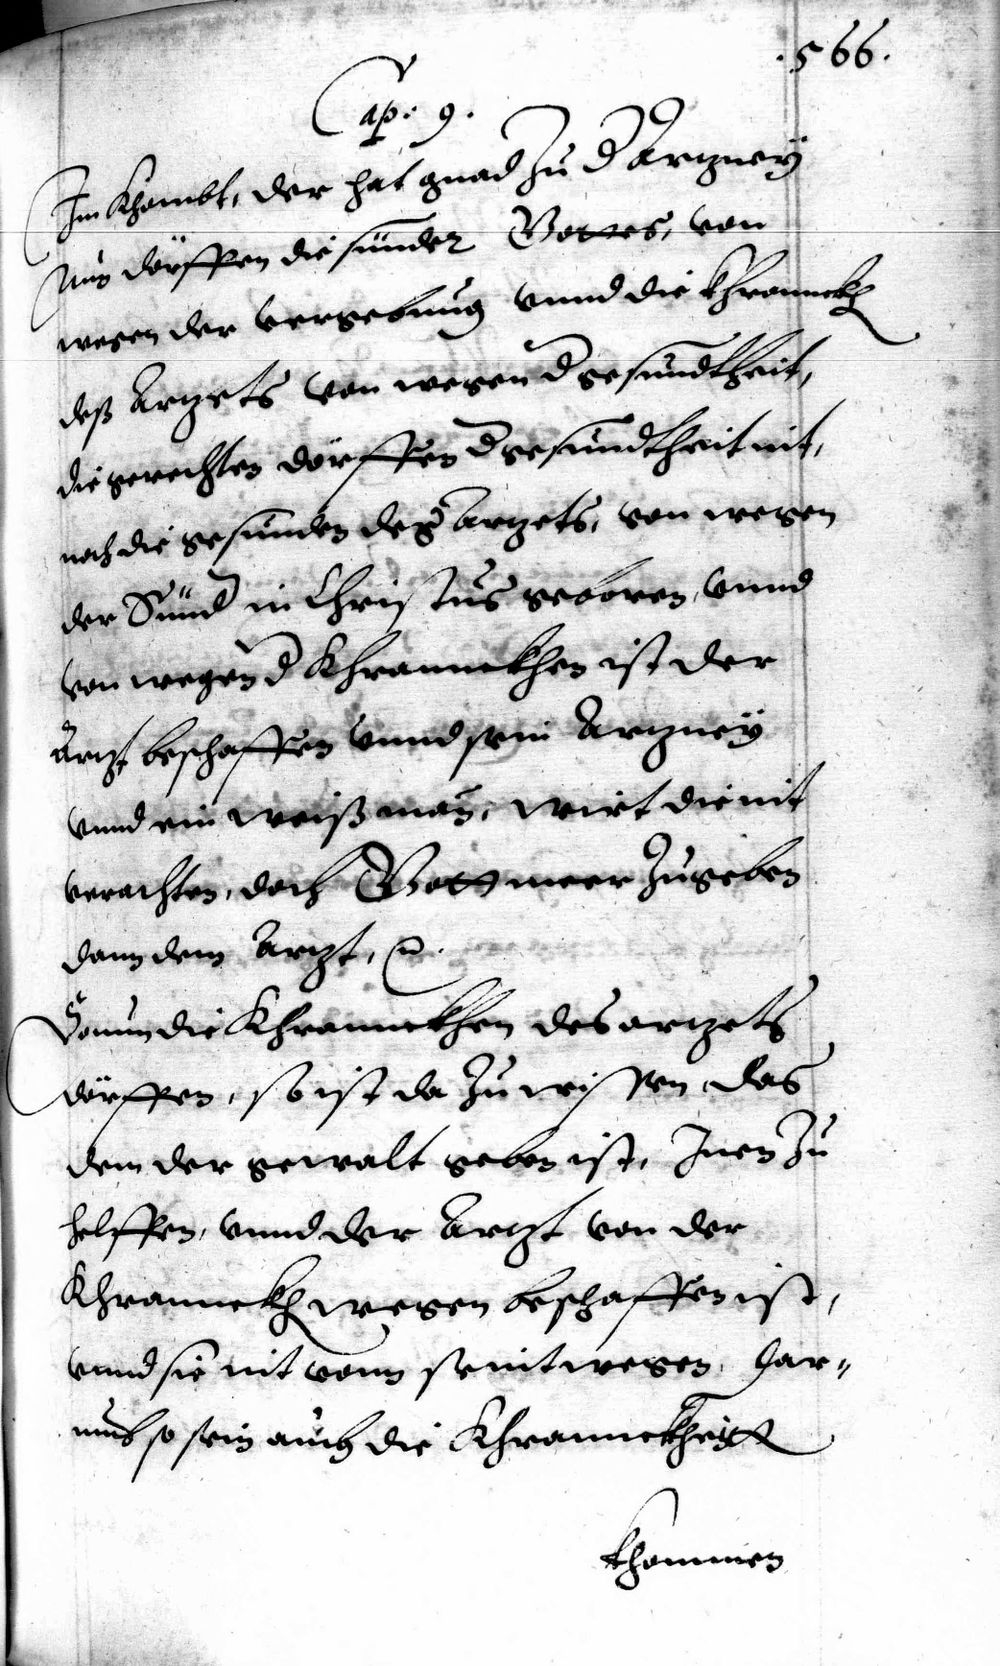 .566.
Cap: 9.
Im khombt, der hat gnad zu d Artzney
Nun dörffen die sünder Gottes, von
wegen der vergebung vnnd die khranneckh
deß Artzets von wegen d gesundtheit,
die gerechten dörffen d gesundtheit nit,
noch die gesunden deß Artzets, von wegen
der Sünd in Christus geboren, vnnd
von wegen d khrannckhen ist der
Artzt beschaffen vnnd sein Artzney
vnnd ein weiß man, wirt die nit
verachten, doch Gott meer zugeben
dann dem Artzt, ꝛc.
Darum die khrannckhen des artzets
dörffen, so ist da zu wissen, das
dem der gewalt geben ist, Inen zu
helffen, vnnd der Artzt von der
khrannckh wegen beschaffen ist,
vnnd sie nit vonn seintwegen, har=
umb so sein auch die khranckheitt
khommen